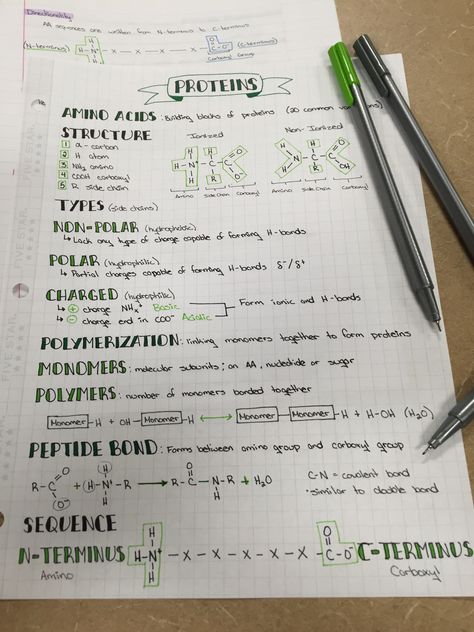 Directionality
AA sequences are written from N-terminus to C-terminus
(N-terminus) H-N⁺ - x - x - x - x - x - C-O⁻ (C-terminus)
Carboxyl Group
PROTEINS
AMINO ACIDS: Building blocks of proteins (20 common
STRUCTURE Ionized Non-Ionized
1 α-carbon
2 H atom
3 NH₂ amino
4 COOH carboxyl
5 R side chain
H H O
H-N⁺-C-C
H R O⁻
Amino Side Chain Carboxyl
H H O
N-C-C
H R OH
Amino Side Chain Carboxyl
TYPES (side chains)
NON-POLAR (hydrophobic)
↳ Lack any type of charge capable of forming H-bonds
POLAR (hydrophilic)
↳ Partial charges capable of forming H-bonds δ⁻/δ⁺
CHARGED (hydrophilic)
↳ + charge NHₓ⁺ Basic
↳ - charge end in COO⁻ Acidic
Form ionic and H-bonds
POLYMERIZATION: linking monomers together to form proteins
MONOMERS: molecular subunits; an AA, nucleotide or sugar
POLYMERS: number of monomers bonded together
Monomer-H + OH-Monomer-H ↔ Monomer-Monomer-H + H-OH (H₂O)
PEPTIDE BOND: Forms between amino group and carboxyl group
O H O
R-C + H-N⁺-R → R-C-N-R + H₂O
O⁻ H H
C-N = covalent bond
·similar to double bond
SEQUENCE
H O
N-TERMINUS H-N⁺ - x - x - x - x - x - C-O⁻ C-TERMINUS
H
Amino Carboxyl
FIVE STAR
FIVE STAR